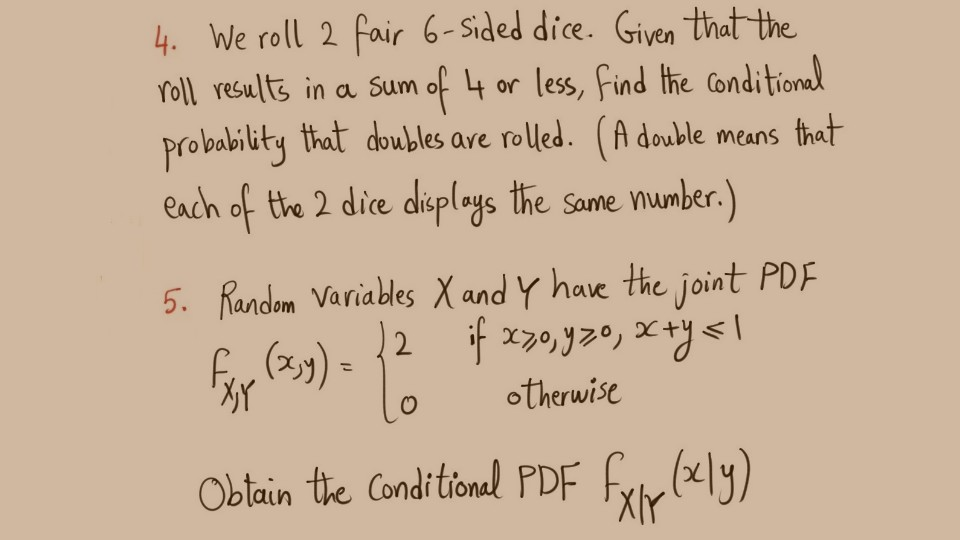 4. We roll 2 fair 6-sided dice. Given that the
roll results in a sum of 4 or less, find the conditional
probability that doubles are rolled. (A double means that
each of the 2 dice displays the same number.)
5. Random variables X and Y have the joint PDF
f_{X,Y}(x,y) = { 2 if x⩾0, y⩾0, x+y⩽1
0 otherwise
Obtain the conditional PDF f_{X|Y}(x|y)